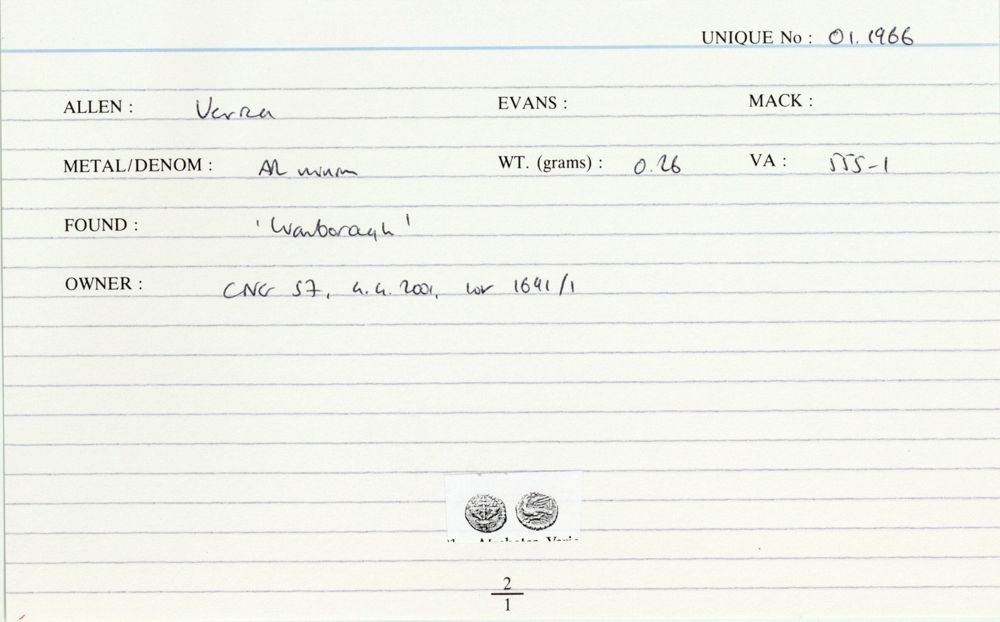 UNIQUE No : 01.1966
ALLEN : Verica EVANS : MACK :
METAL/DENOM : AR minim WT. (grams) : 0.26 VA : 555-1
FOUND : 'Wanborough'
OWNER : CNG 57, 4.4.2001, lot 1641/1
2
1